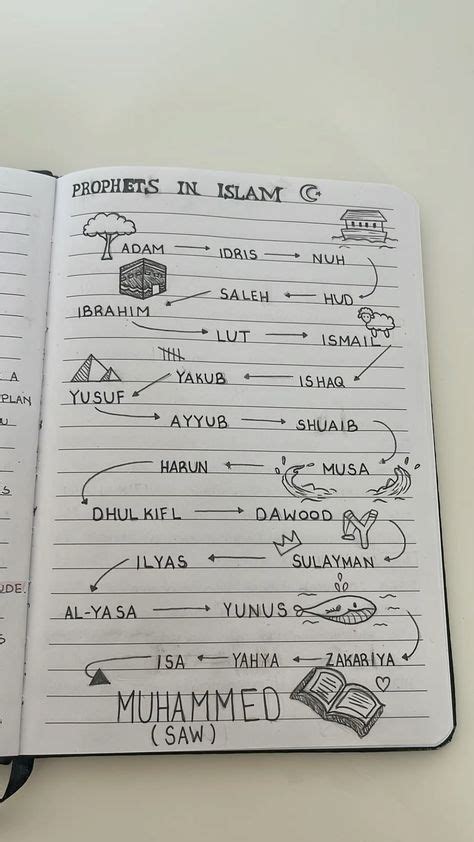 PROPHETS IN ISLAM
ADAM → IDRIS → NUH
SALEH ← HUD
IBRAHIM
LUT → ISMAIL
YAKUB ← ISHAQ
YUSUF
AYYUB → SHUAIB
HARUN ← MUSA
DHULKIFL → DAWOOD
ILYAS ← SULAYMAN
AL-YASA → YUNUS
ISA ← YAHYA ← ZAKARIYA
MUHAMMED
(SAW)
A
PLAN
S
UDE.
S